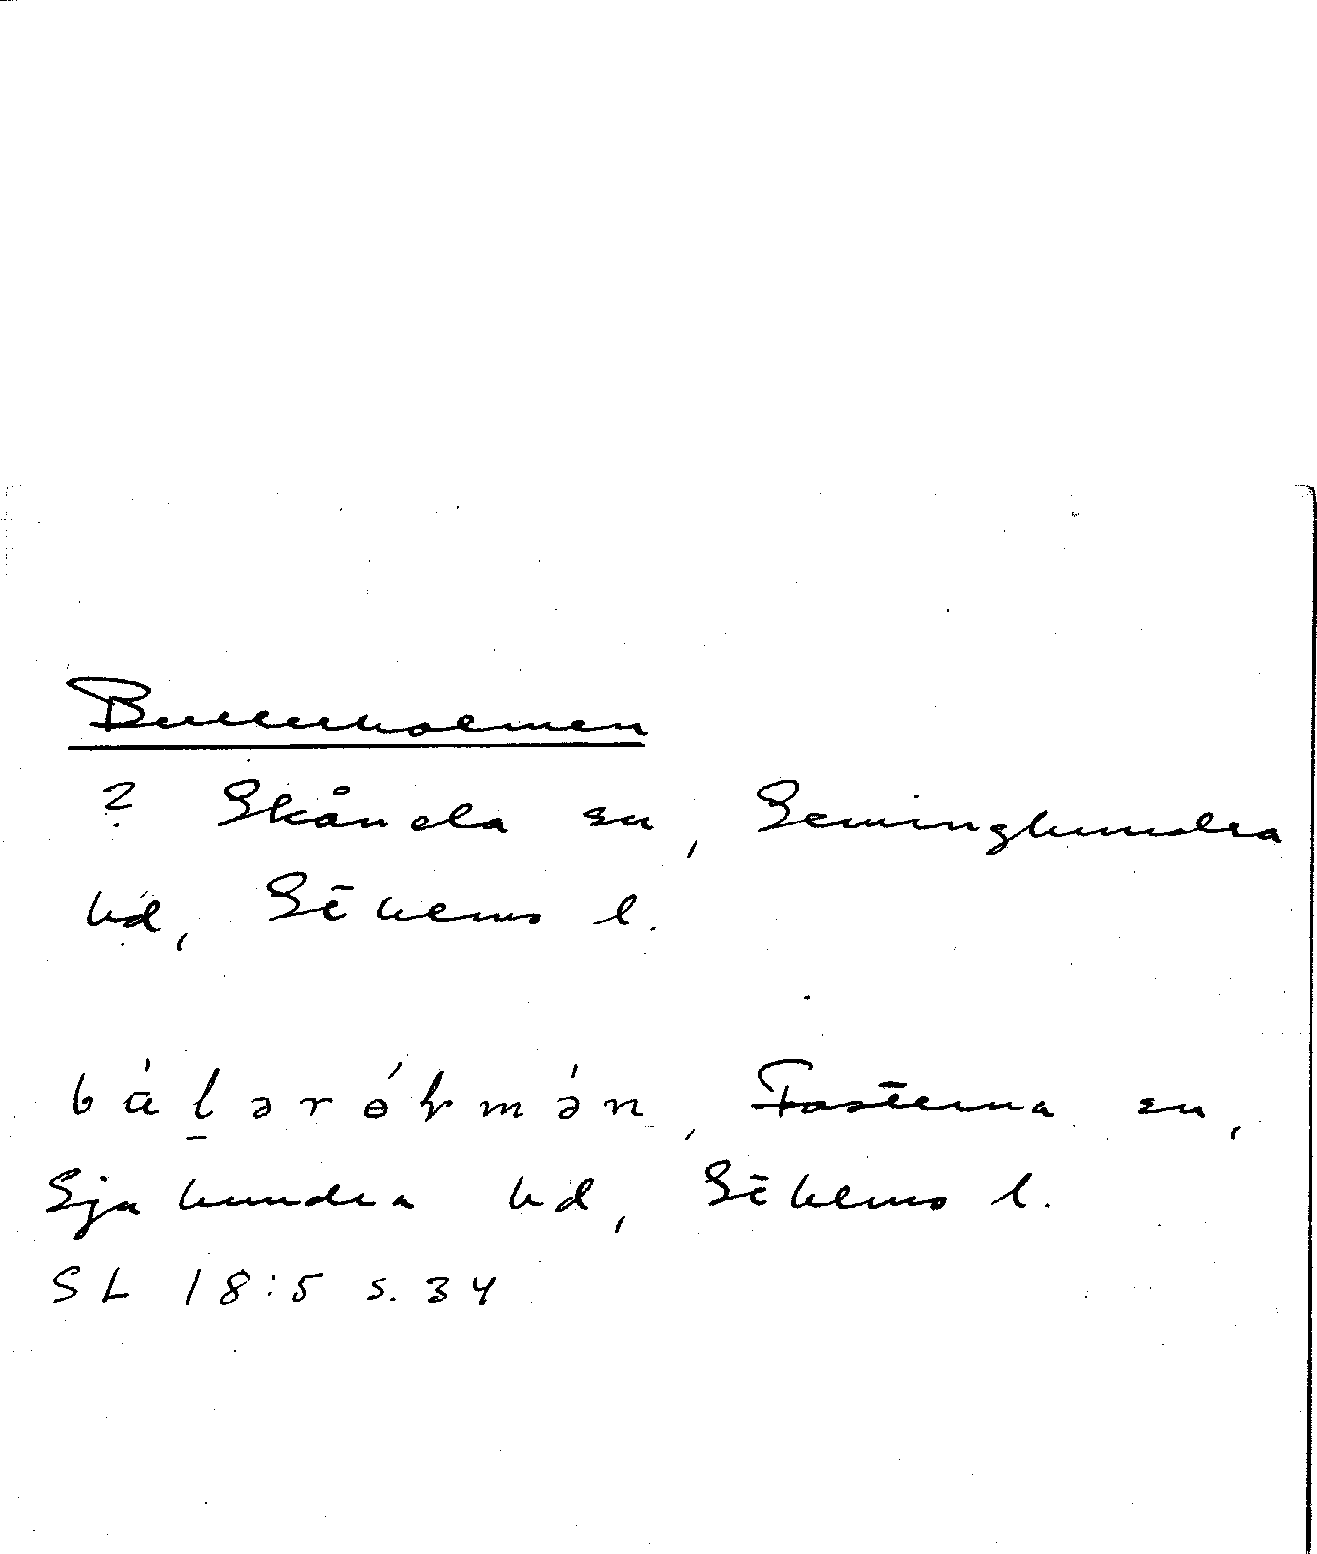 Bullerholmen
? Skånela sn, Seminghundra
hd, Sthlms l.
Fasterna sn,
Sjuhundra hd, Sthlms l.
SL 18:5 s. 34